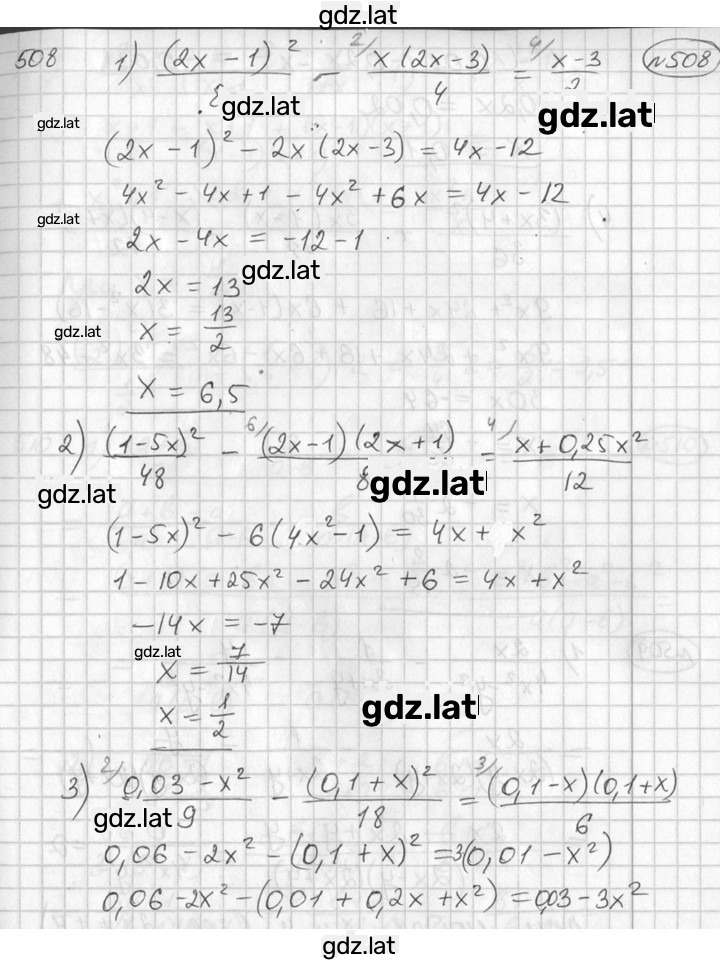 gdz.lat
508 1) (2x - 1)² / 8 - ²⁾ x(2x - 3) / 4 = ⁴⁾ x - 3 / 2 №508
gdz.lat gdz.lat
(2x - 1)² - 2x(2x - 3) = 4x - 12
4x² - 4x + 1 - 4x² + 6x = 4x - 12
gdz.lat
2x - 4x = -12 - 1
gdz.lat
2x = 13
gdz.lat x = 13/2
x = 6,5
2) (1 - 5x)² / 48 - ⁶⁾ (2x - 1)(2x + 1) / 8 = ⁴⁾ x + 0,25x² / 12
gdz.lat gdz.lat
(1 - 5x)² - 6(4x² - 1) = 4x + x²
1 - 10x + 25x² - 24x² + 6 = 4x + x²
-14x = -7
gdz.lat
x = 7/14
x = 1/2
gdz.lat
3) ²⁾ 0,03 - x² / 9 - (0,1 + x)² / 18 = ³⁾ (0,1 - x)(0,1 + x) / 6
gdz.lat
0,06 - 2x² - (0,1 + x)² = 3(0,01 - x²)
0,06 - 2x² - (0,01 + 0,2x + x²) = 0,03 - 3x²
gdz.lat